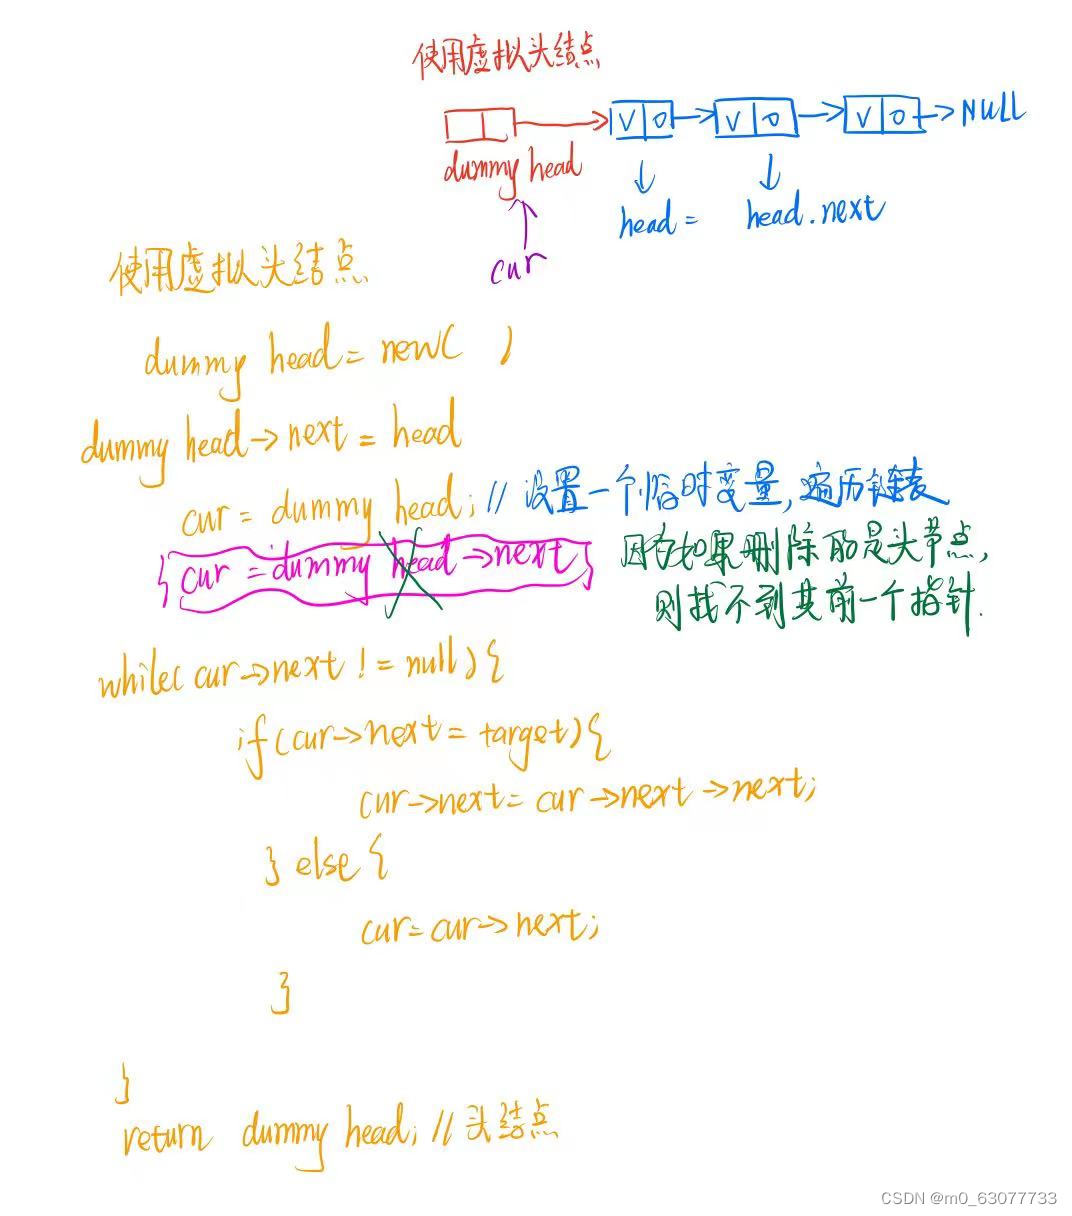 使用虚拟头结点
V 0 V 0 V 0 NULL
dummy head
head = head.next
cur
使用虚拟头结点
dummy head = new( )
dummy head->next = head
cur = dummy head; // 设置一个临时变量, 遍历链表
{ cur = dummy head->next }
因为如果删除的是头节点,
则找不到其前一个指针.
while( cur->next != null ) {
if (cur->next = target) {
cur->next = cur->next->next;
} else {
cur = cur->next;
}
}
return dummy head; // 头结点
CSDN @m0_63077733